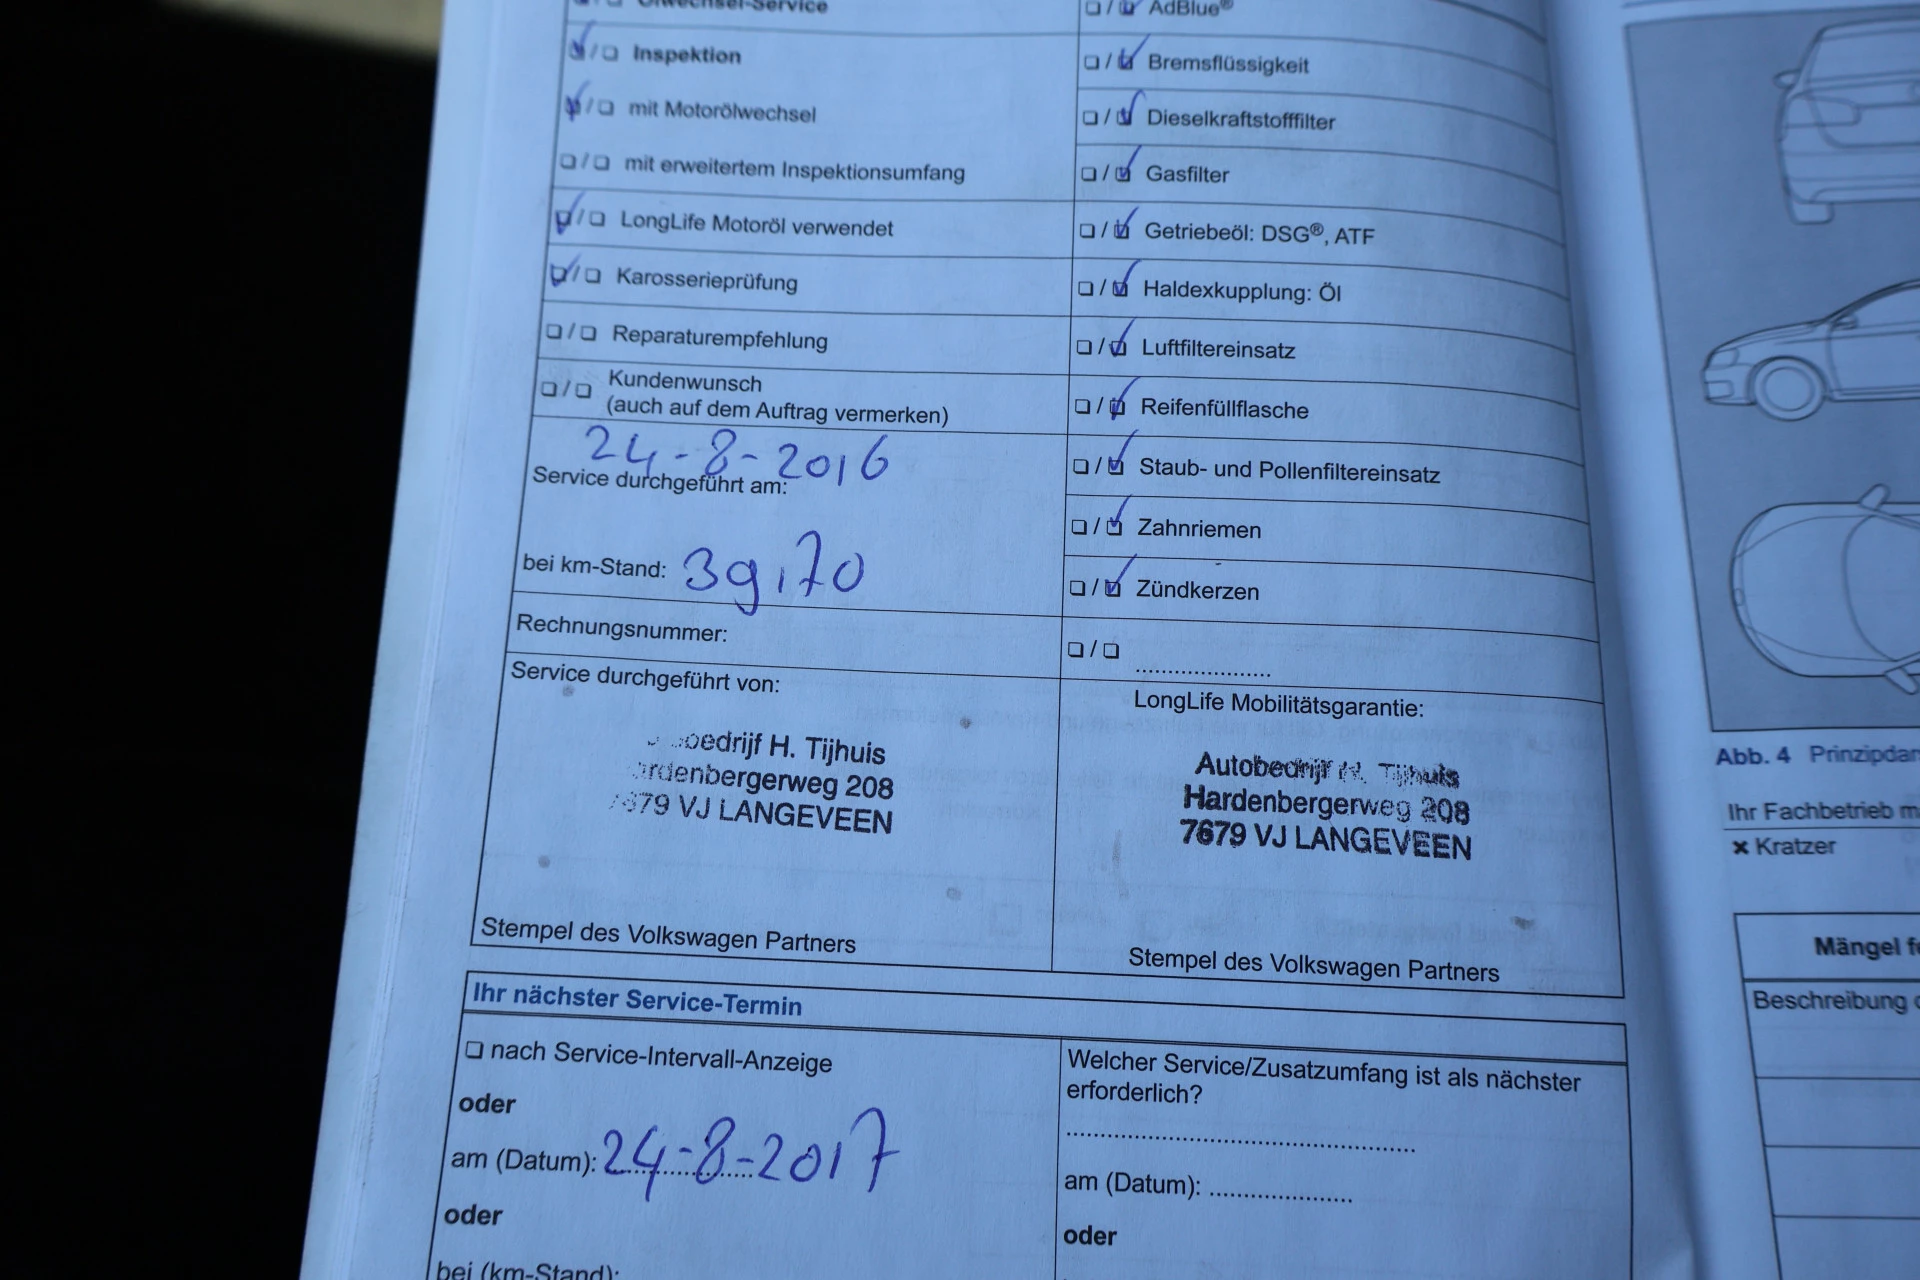 Ölwechsel-Service
Inspektion
mit Motorölwechsel
mit erweitertem Inspektionsumfang
LongLife Motoröl verwendet
Karosserieprüfung
Reparaturempfehlung
Kundenwunsch
(auch auf dem Auftrag vermerken)
24-8-2016
Service durchgeführt am:
bei km-Stand: 39170
Rechnungsnummer:
Service durchgeführt von:
oedrijf H. Tijhuis
rdenbergerweg 208
7679 VJ LANGEVEEN
Stempel des Volkswagen Partners
AdBlue®
Bremsflüssigkeit
Dieselkraftstofffilter
Gasfilter
Getriebeöl: DSG®, ATF
Haldexkupplung: Öl
Luftfiltereinsatz
Reifenfüllflasche
Staub- und Pollenfiltereinsatz
Zahnriemen
Zündkerzen
LongLife Mobilitätsgarantie:
Autobedrijf H. Tijhuis
Hardenbergerweg 208
7679 VJ LANGEVEEN
Stempel des Volkswagen Partners
Ihr nächster Service-Termin
nach Service-Intervall-Anzeige
oder
am (Datum): 24-8-2017
oder
bei (km-Stand):
Welcher Service/Zusatzumfang ist als nächster
erforderlich?
am (Datum):
oder
Abb. 4 Prinzipdar
Ihr Fachbetrieb m
× Kratzer
Mängel fe
Beschreibung